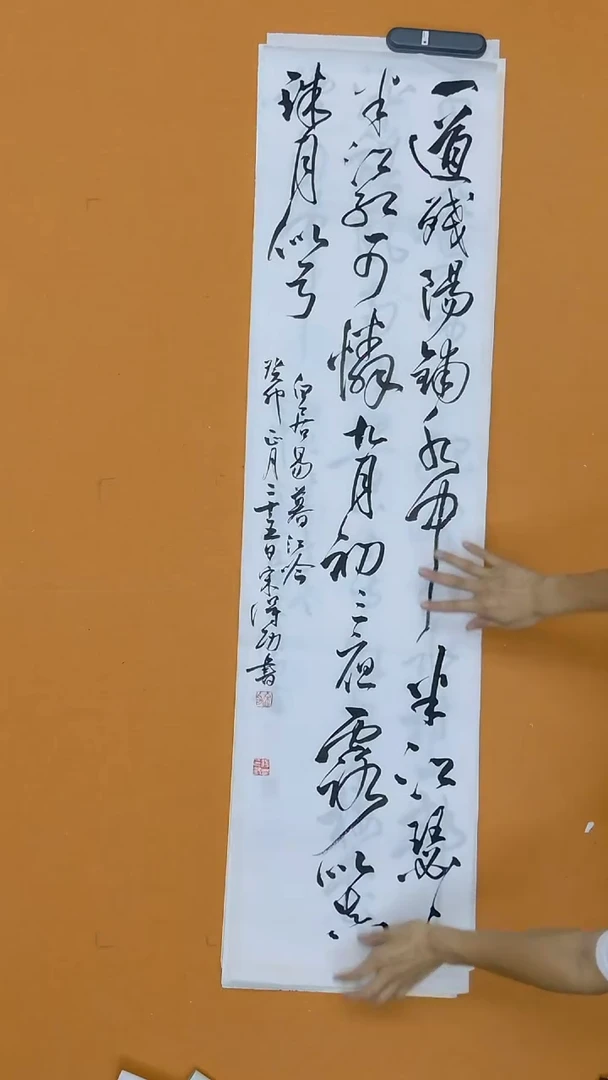 一道残陽鋪水中半江瑟々
半江紅可憐九月初三夜露似真
珠月似弓
白居易暮江吟
癸卯正月二十五日宋書